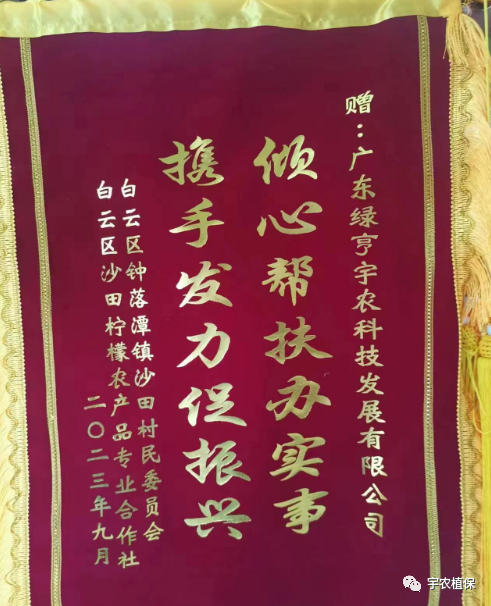 赠：广东绿亨宇农科技发展有限公司
倾心帮扶办实事
携手发力促振兴
白云区钟落潭镇沙田村民委员会
白云区沙田柠檬农产品专业合作社
二〇二三年九月
宇农植保